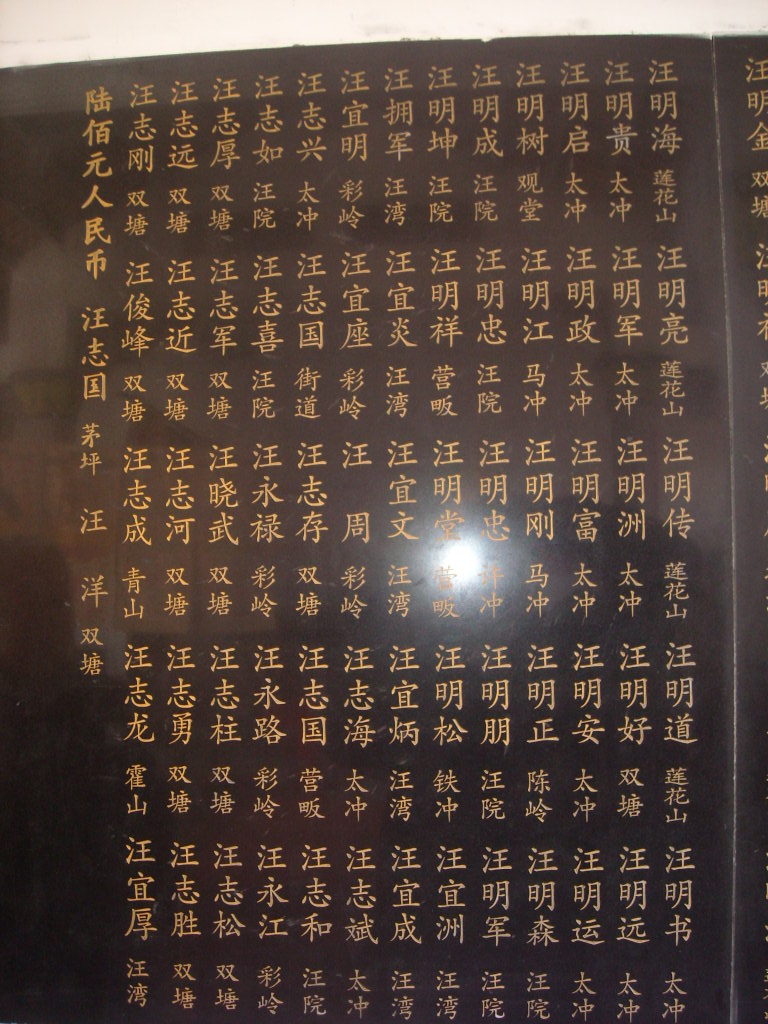 汪明金 双塘
汪明海 莲花山 汪明亮 莲花山 汪明传 莲花山 汪明道 莲花山 汪明书 太冲
汪明贵 太冲 汪明军 太冲 汪明洲 太冲 汪明好 双塘 汪明远 太冲
汪明启 太冲 汪明政 太冲 汪明富 太冲 汪明安 太冲 汪明运 太冲
汪明树 观堂 汪明江 马冲 汪明刚 马冲 汪明正 陈岭 汪明森 汪院
汪明成 汪院 汪明忠 汪院 汪明忠 许冲 汪明朋 汪院 汪明军 汪院
汪明坤 汪院 汪明祥 营畈 汪明堂 营畈 汪明松 铁冲 汪宜洲 汪湾
汪拥军 汪湾 汪宜炎 汪湾 汪宜文 汪湾 汪宜炳 汪湾 汪宜成 汪湾
汪宜明 彩岭 汪宜座 彩岭 汪周 彩岭 汪志海 太冲 汪志斌 太冲
汪志兴 太冲 汪志国 街道 汪志存 双塘 汪志国 营畈 汪志和 汪院
汪志如 汪院 汪志喜 汪院 汪永禄 彩岭 汪永路 彩岭 汪永江 彩岭
汪志厚 双塘 汪志军 双塘 汪晓武 双塘 汪志柱 双塘 汪志松 双塘
汪志远 双塘 汪志近 双塘 汪志河 双塘 汪志勇 双塘 汪志胜 双塘
汪志刚 双塘 汪俊峰 双塘 汪志成 青山 汪志龙 霍山 汪宜厚 汪湾
陆佰元人民币 汪志国 茅坪 汪洋 双塘